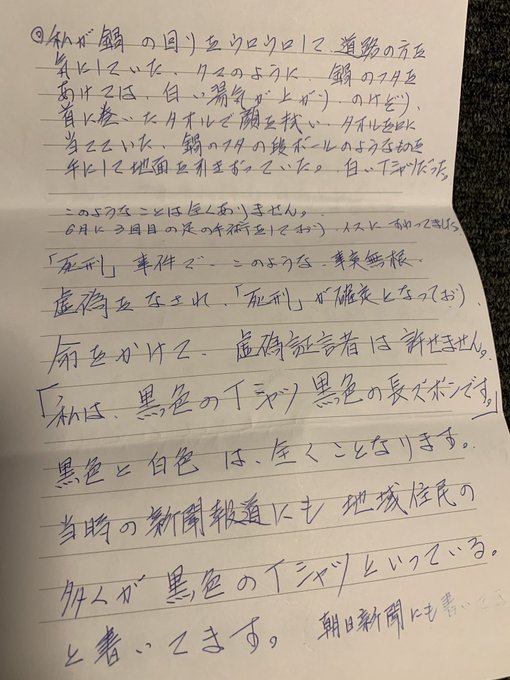 ◎私が鍋の回りをウロウロして、道路の方を
気にしていた、クマのように、鍋のフタを
あけては、白い湯気が上がり、のけぞり、
首に巻いたタオルで顔を拭い、タオルを口に
当てていた、鍋のフタの段ボールのようなものを
手にして地面を引きずっていた。白いTシャツだった。
このようなことは全くありません。
6月に3回目の足の手術をしており、イスにすわってました。
「死刑」事件で、このような、事実無根、
虚偽をなされ、「死刑」が確定となっており、
命をかけて、虚偽証言者は許せません。
「私は、黒色のTシャツ黒色の長ズボンです。」
黒色と白色は、全くことなります。
当時の新聞報道にも地域住民の
多くが黒色のTシャツといっている。
と書いてます。朝日新聞にも書いて